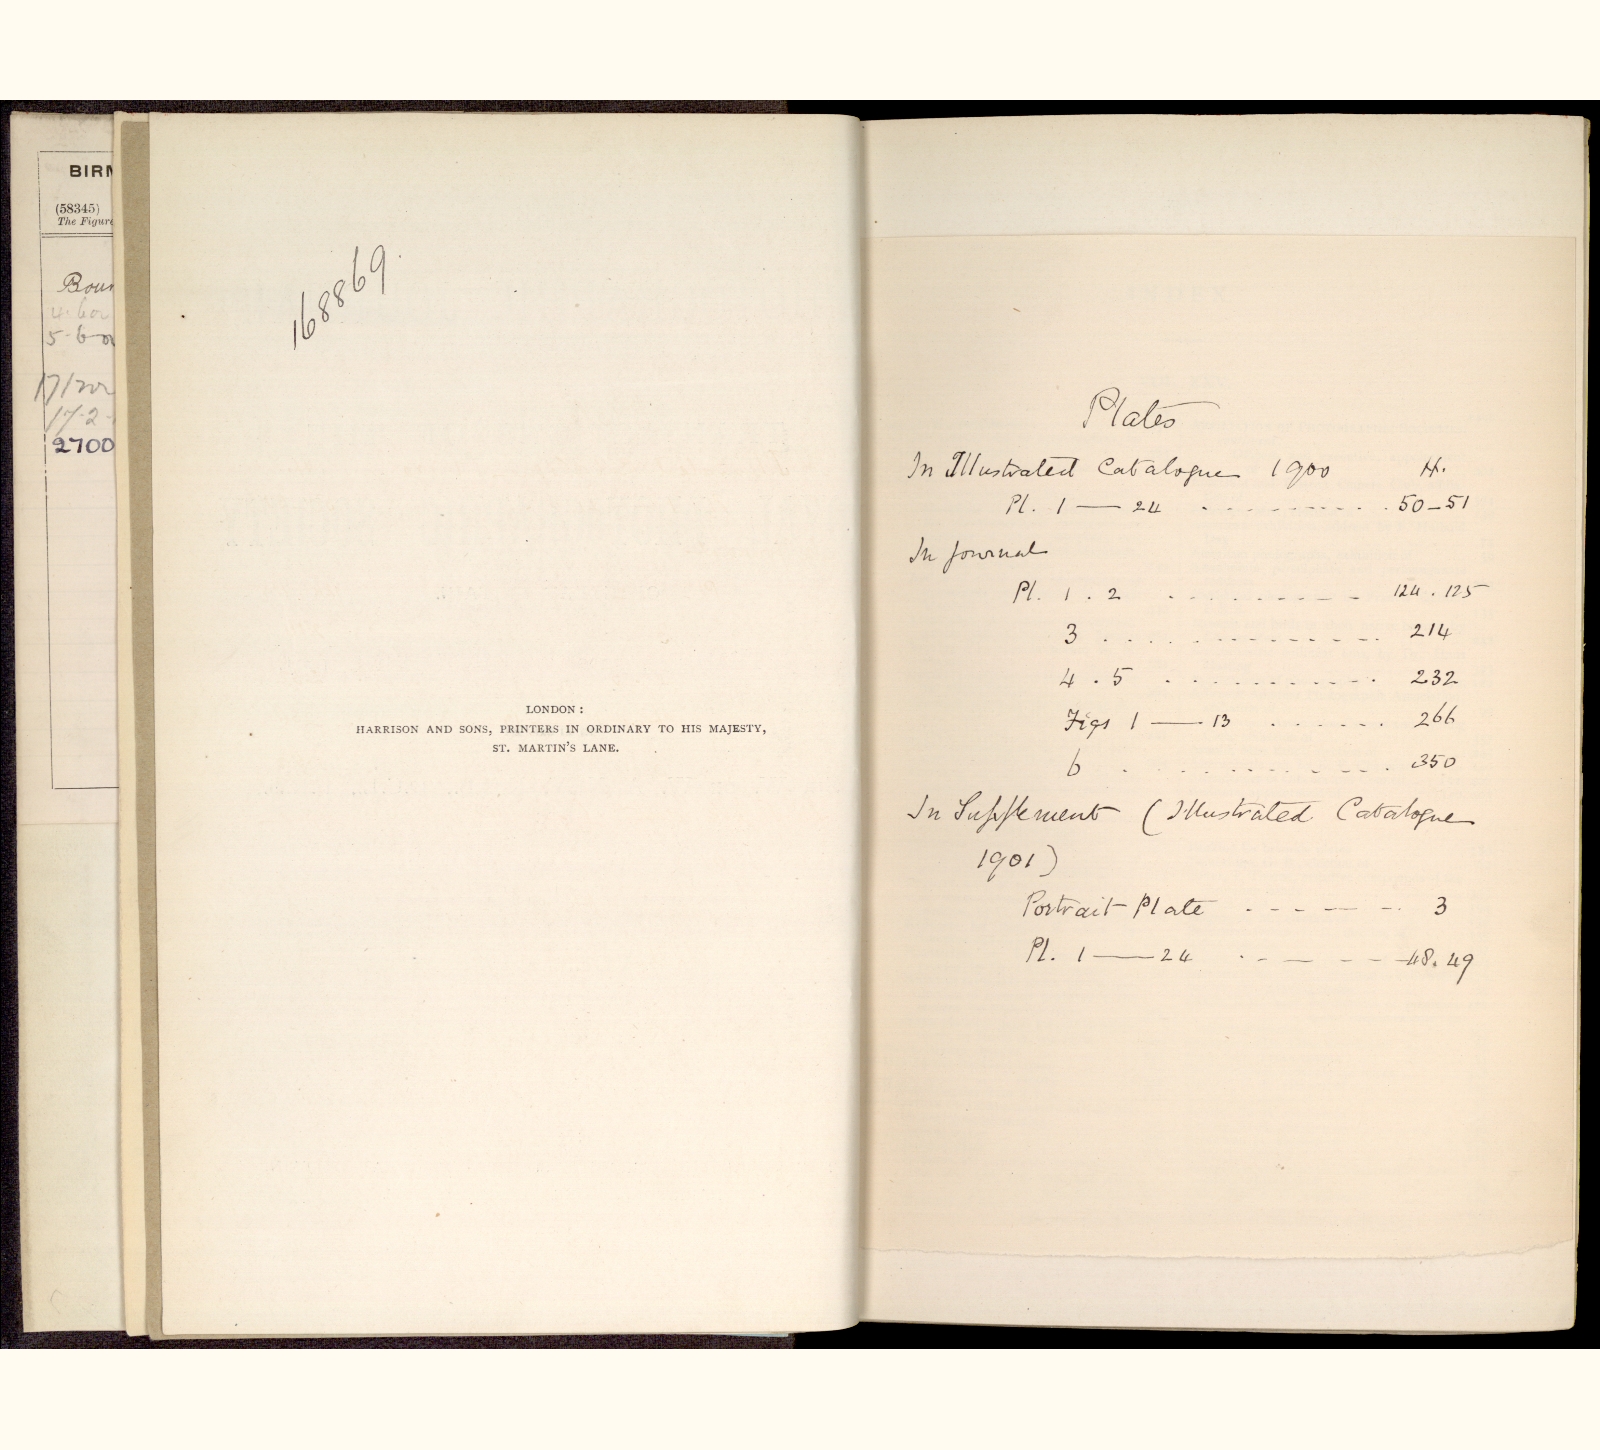 BIRM
(58345)
The Figure
5-6
17-2-
2700
168869.
LONDON:
HARRISON AND SONS, PRINTERS IN ORDINARY TO HIS MAJESTY,
ST. MARTIN'S LANE.
Plates
In Illustrated Catalogue 1900 H.
Pl. 1 — 24 . - - - - - - - . . 50-51
In Journal
Pl. 1 . 2 . - - - - - - - - 124 . 125
3 . . . . - - - - - - - - . 214
4 . 5 . . . . . . . . . - . 232
Figs 1 — 13 . . . . - . . 266
6 . . . . . . . - - - . 350
In Supplement (Illustrated Catalogue
1901)
Portrait Plate - - - — - - 3
Pl. 1 — 24 . - - — - - - 48. 49